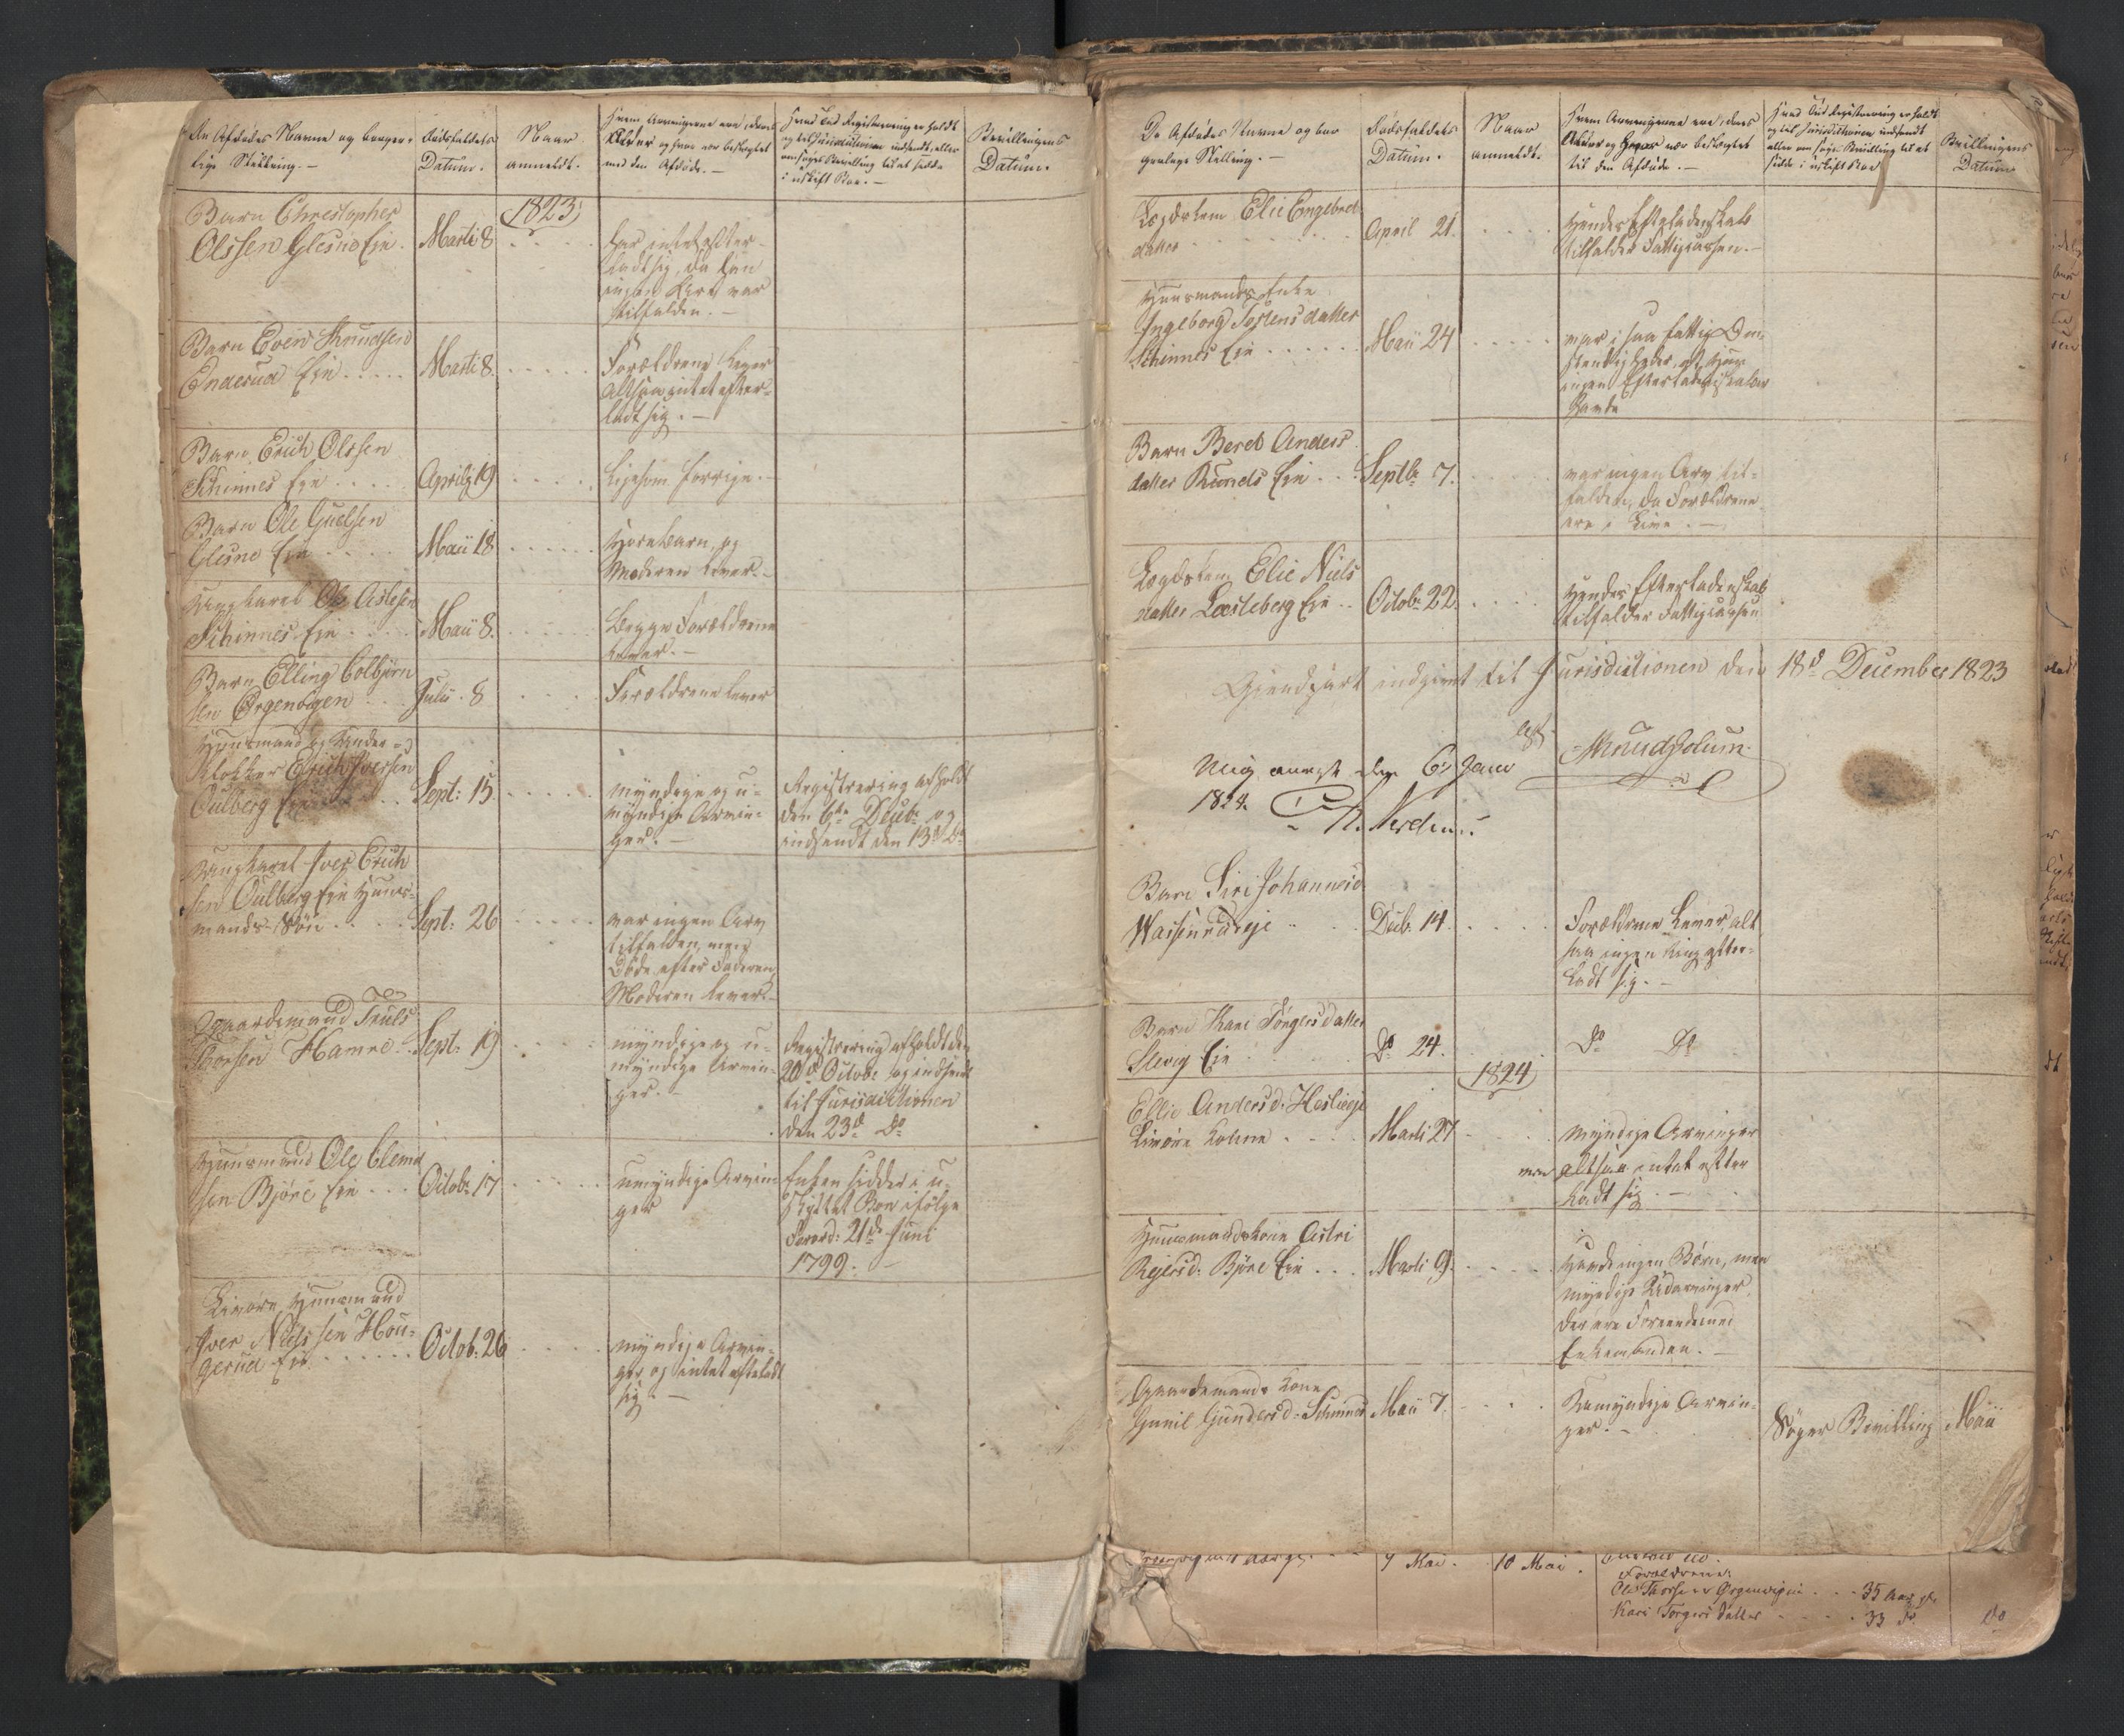 De Afdødes Navne og borger-
lige Stilling. –
Dødsfaldets
Datum.
Naar
anmeldt.
Hvem Arvingerne ere, deres
Alder og hvor nær beslægtet
med den Afdøde. –
Hvad Tid Registrering er holdt
og til Jurisdictionen indsendt, eller
om søges Bevilling til at sidde
i uskift Boe. –
Bevillingens
Datum.
1823
Barn Christopher
Olssen Glesne Eie.
Martii 8
har intet efter-
ladt sig, da han
ingen Arv var
tilfalden. –
Barn Even Knudsen
Enderud Eie
Martii 8.
Forældrene lever
altsaa intet efter-
ladt sig. –
Barn Erich Olssen
Schinnes Eie
Aprilii 19
Ligesom forrige. –
Barn Ole Guelsen
Glesne Eie
Maii 18
Horebarn, og
Moderen lever. –
Ungkarl Ole Aslesen
Schinnes Eie
Maii 8.
Begge Forældrene
lever. –
Barn Elling Colbjørn
sen Ørgenvigen
Julii 8
Forældrene lever
Huusmand og Under-
Klokker Erich Iversen
Oulberg Eie
Sept: 15
myndige og u-
myndige Arvin-
ger. –
Registrering afholdt
den 6te Decbr og
indsendt den 13de Do
Ungkarl Iver Erich
sen Oulberg Eie Huus-
mands Søn
Sept: 26
var ingen Arv
tilfalden, men
Døde efter Faderen,
Moderen lever. –
Gaardmand Truls
Torsen Hamre
Sept: 19
myndige og u-
myndige Arvin-
ger. –
Registrering afholdt den
20de Octobr og indsendt
til Jurisdictionen
den 23de Do
Huusmand Ole Clemed
sen Bjøre Eie
Octobr 17
umyndige Arvin-
ger
Enken sidder i u-
skiftet Boe ifølge
Forord: 21de Juni
1799. –
Huusmand
Iver Nielssen Hou-
gerud Eie
Octob: 26
myndige Arvin-
ger og intet efterladt
sig. –
De Afdødes Navne og bor
gerlige Stilling. –
Dødsfaldets
Datum.
Naar
anmeldt.
Hvem Arvingerne ere, deres
Alder og hvor nær beslægtet
til den Afdøde. –
Hvad Tid Registrering er holdt
og til Jurisdictionen indsendt
eller om søges Bevilling til at
sidde i uskift Boe
Bevillingens
Datum
Lægdslem Elie Engebret
datter
April 21.
Hendes Efterladenskab
tilfalder Fattigcassen. –
Huusmands Enke
Ingeborg Torstensdatter
Schinnes Eie
Maii 24
var i saa fattige Om-
stendigheder, at Hun
ingen Efterladenskaber
havde
Barn Bereb Anders
datter Runds Eie
Septbr 7.
var ingen Arv til-
falden, da Forældrene
ere i Live. –
Lægdslem Elie Niels
datter Læsleberg Eie
Octobr 22
Hendes Efterladenskab
tilfalder Fattigcassen
Gjendpart indgivet til Jurisdictionen den 18de December 1823
Knud Holum
Mig den 6te Janr
1824.
Barn Siri Johannesd
Waisenrud eje
Decb. 14
Forældrene Lever, alt
saa ingen Ting efter-
ladt sig. –
Barn Kari Torgersdatter
Slevig Eie
Do 24.
Do Do
1824
Ellie Andersd: Haslieeje
Kone
Martii 27
myndige Arvinger
men altsaa intet efter
ladt sig. –
Huusmandskone Astri
Rejersd: Bjøre Eie
Martii 9.
Havde ingen Børn, men
myndige Udarvinger,
der ere Forenede med
Enkemanden. –
Gaardmands Kone
Gunil Gundersd: Schinnes
Maii 7.
Umyndige Arvin-
ger. –
Søger Bevilling
Maii
9 Mai.
10 Mai.
Forældrene:
Ole Thorsen Ørgenvigen 35 Aar gl.
Kari Torgersdatter 33 Do
Do